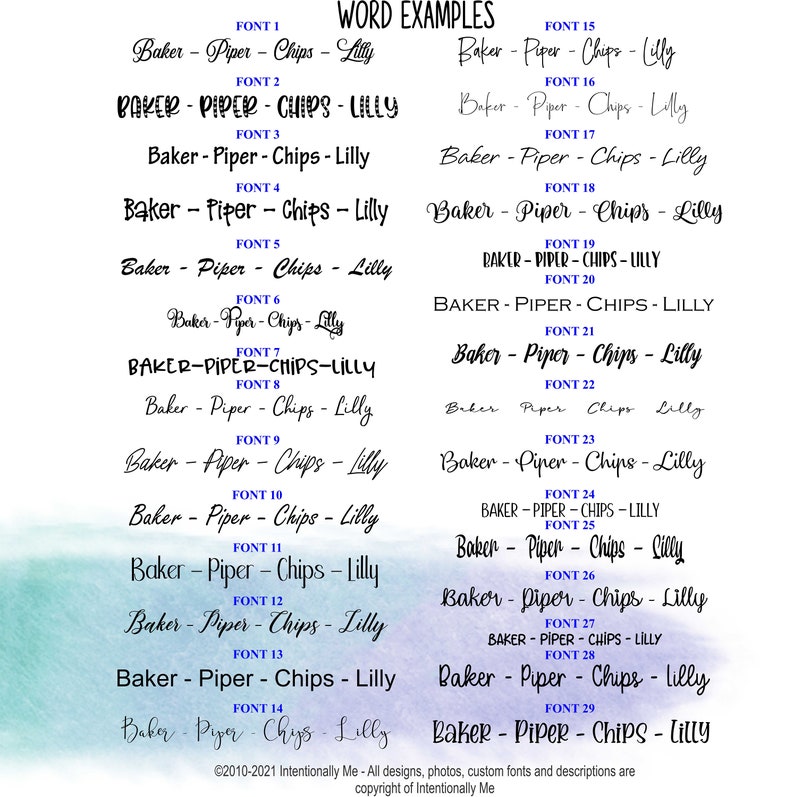 WORD EXAMPLES
FONT 1
Baker – Piper – Chips – Lilly
FONT 2
BAKER - PIPER - CHIPS - LILLY
FONT 3
Baker - Piper - Chips - Lilly
FONT 4
Baker – Piper – Chips – Lilly
FONT 5
Baker - Piper - Chips - Lilly
FONT 6
Baker - Piper - Chips - Lilly
FONT 7
BAKER–PIPER–CHIPS–LILLY
FONT 8
Baker - Piper - Chips - Lilly
FONT 9
Baker - Piper - Chips - Lilly
FONT 10
Baker - Piper - Chips - Lilly
FONT 11
Baker – Piper – Chips – Lilly
FONT 12
Baker - Piper - Chips - Lilly
FONT 13
Baker - Piper - Chips - Lilly
FONT 14
Baker - Piper - Chips - Lilly
FONT 15
Baker - Piper - Chips - Lilly
FONT 16
Baker - Piper - Chips - Lilly
FONT 17
Baker - Piper - Chips - Lilly
FONT 18
Baker - Piper - Chips - Lilly
FONT 19
BAKER - PIPER - CHIPS - LILLY
FONT 20
BAKER - PIPER - CHIPS - LILLY
FONT 21
Baker - Piper - Chips - Lilly
FONT 22
Baker Piper Chips Lilly
FONT 23
Baker - Piper - Chips - Lilly
FONT 24
BAKER – PIPER – CHIPS – LILLY
FONT 25
Baker - Piper - Chips - Lilly
FONT 26
Baker - Piper - Chips - Lilly
FONT 27
BAKER - PIPER - CHIPS - LILLY
FONT 28
Baker - Piper - Chips - Lilly
FONT 29
BAKER - PIPER - CHIPS - LILLY
©2010-2021 Intentionally Me - All designs, photos, custom fonts and descriptions are
copyright of Intentionally Me